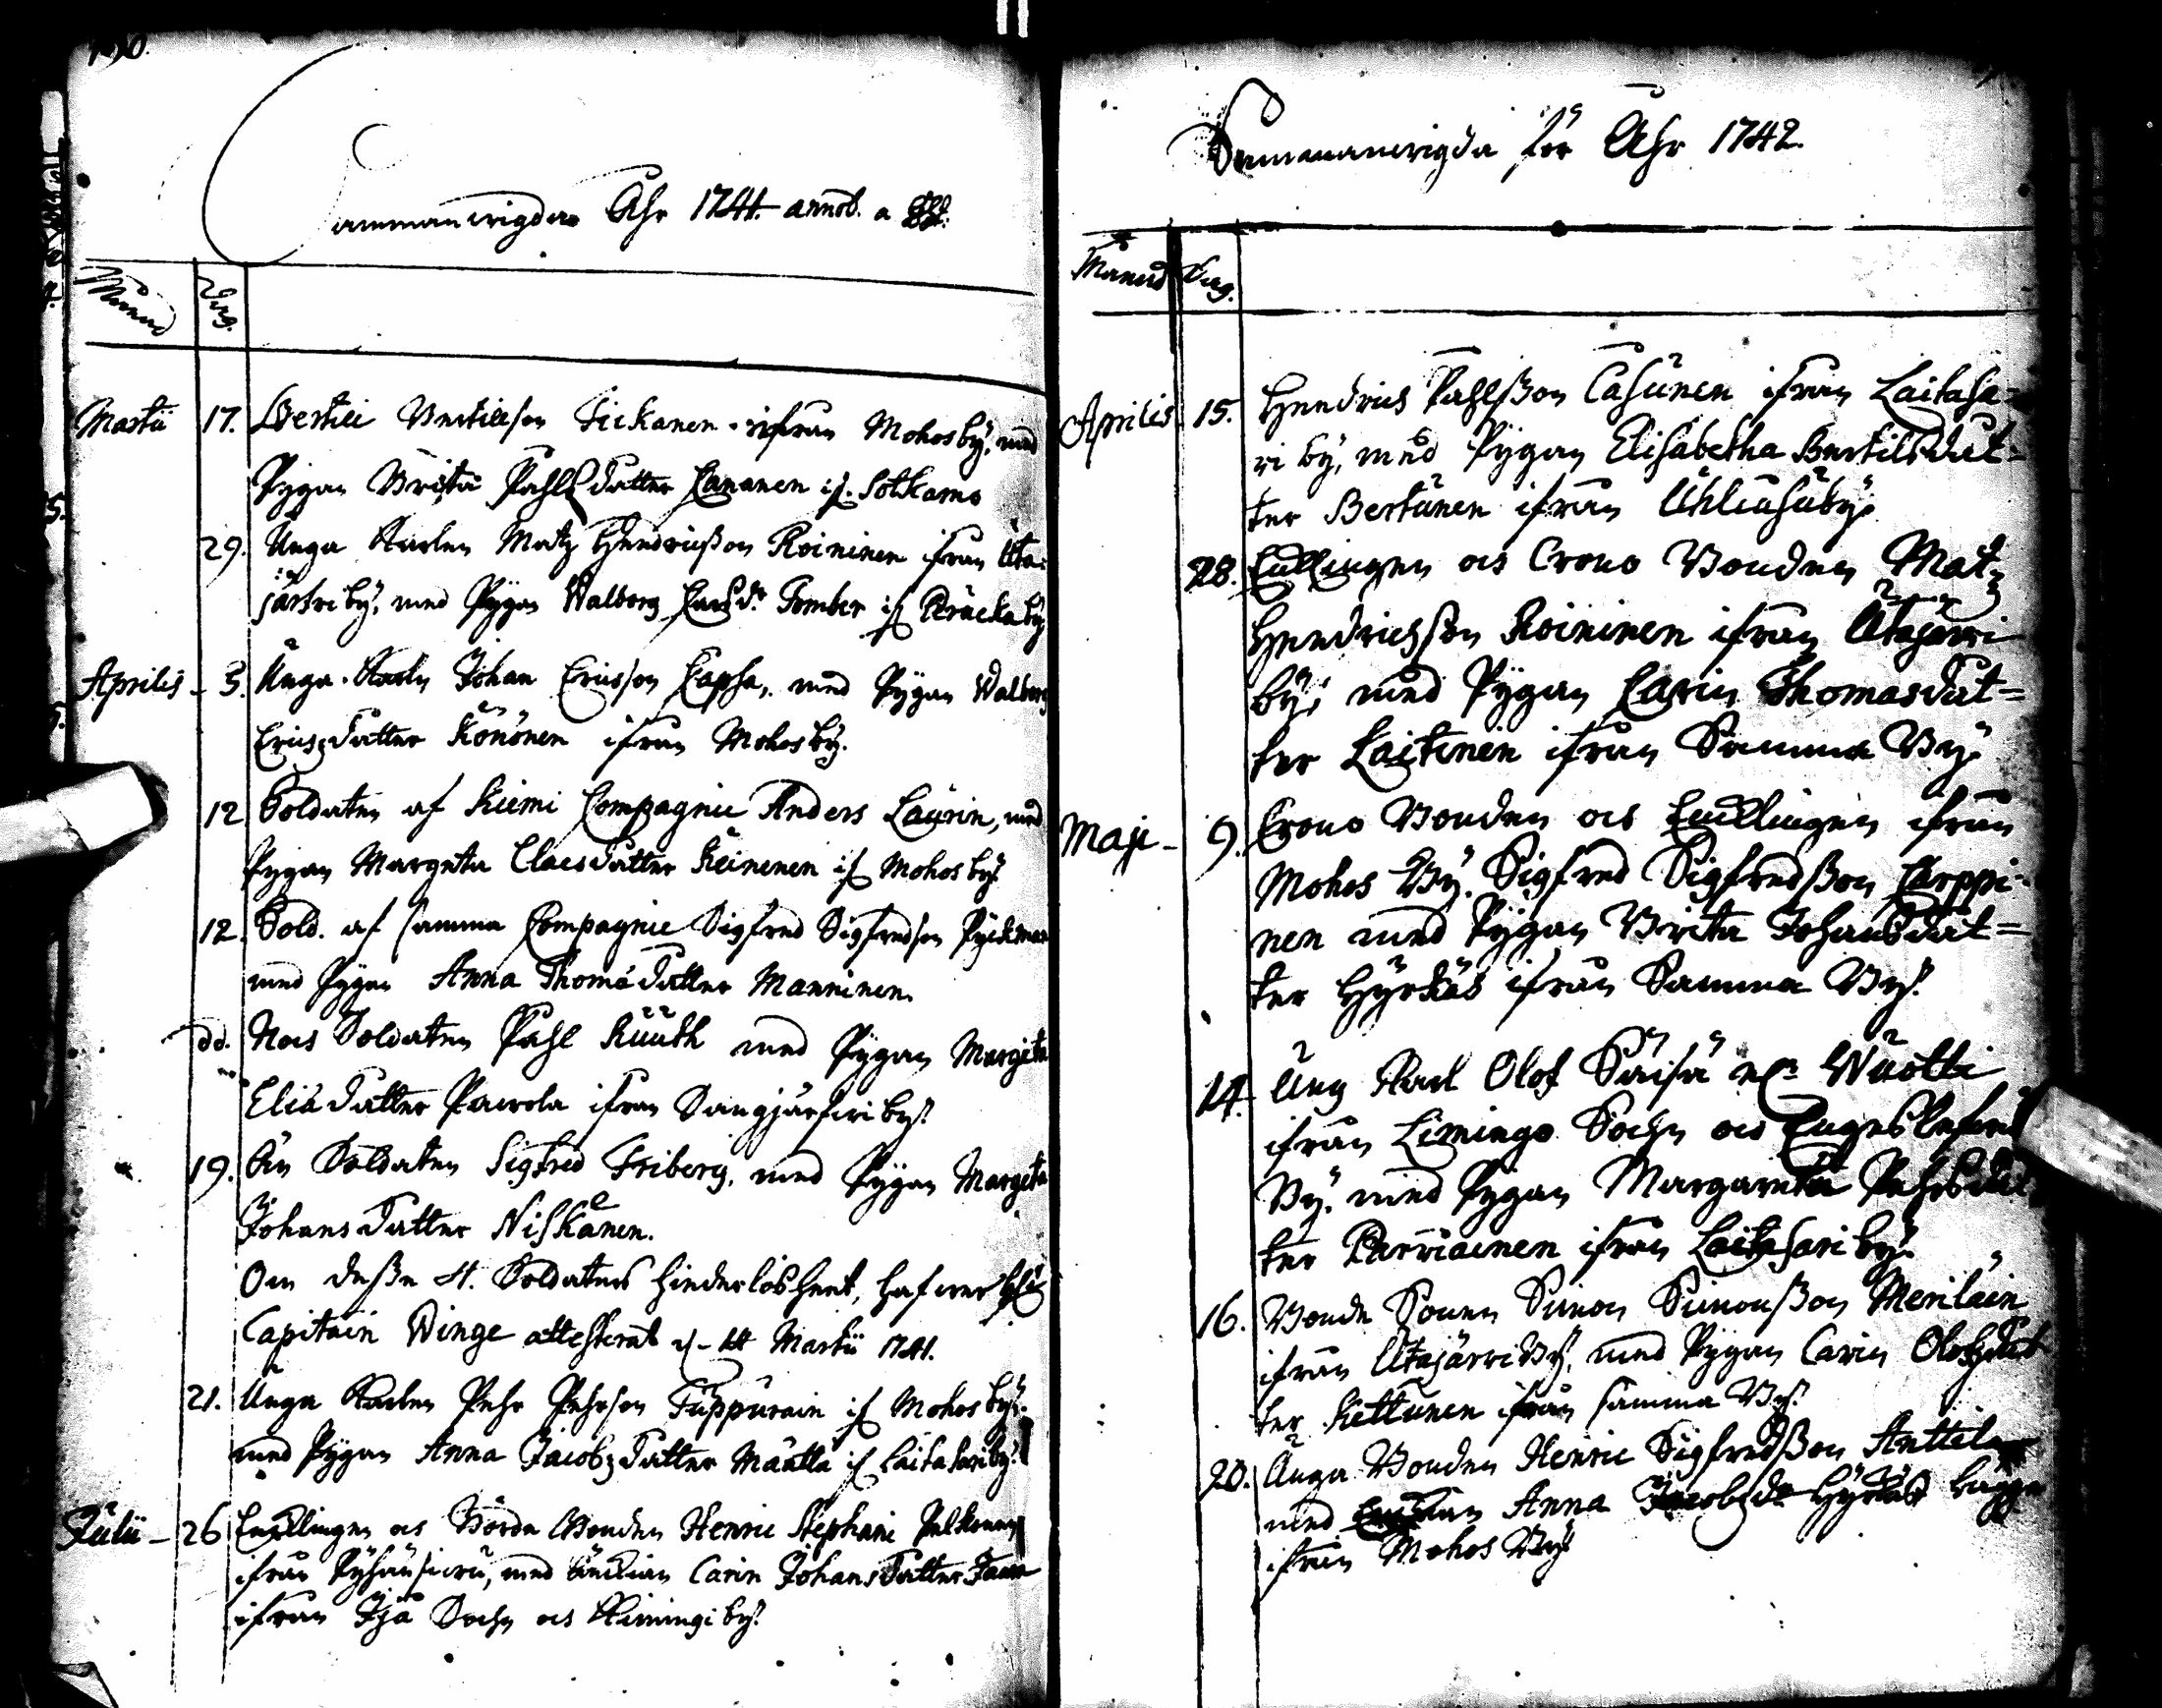 130.
Sammanwigda Åhr 1741. annot. a
Månad Dag.
Martii 17. Bertill Bertillson Tickanen ifrån Mohosby, med
Pygan Brita Pahlsdatter Kananen if. Sotkamo
29. Unga Karlen Matz Hendrichsson Roininen ifrån Uta-
järfwi by, med Pygan Walborg Larsdr Tomber if
Aprilis - 3. Unga Karln Johan Ericsson Kapsa, med Pygan Walborg
Ericsdatter Könönen ifrån Mohosby.
12 Soldaten af Kiemi Compagnie Anders Laurin, med
Pygan Margeta Claesdatter Keinenen if Mohosby.
12. Sold. af samma Compagnie Sigfred Sigfredson
med Pygan Anna Thomædatter Manninen.
dd. Noch Soldaten Pahl Ruuth med Pygan Margeta
Eliædatter Pawola ifrån Sangjärfwi by.
19. Än Soldaten Sigfred Friberg, med Pygan Margeta
Johansdatter Niskanen.
Om desse 4. Soldaters hinderlösheet, hafwer
Capitain Winge attesterat d. 14 Martii 1741.
21. Unga Karlen Pehr Pehrson Tuppurain if Mohosby.
med Pygan Anna Jacobsdatter Määttä if Laitasariby.
Julii - 26 Enklingen och Bonden Henric Stephani Pelkonen
ifrån, med Änckian Carin Johansdatter
ifrån Ijå Sochn och Kiimingi by.
Sammanwigda för Åhr 1742.
Månad Dag.
Aprilis 15. Hendrich Pahlsson Casurinen ifrån Laitasa-
ri by, med Pygan Elisabetha Bertilsdat-
ter Bertunen ifrån
28. Enklingen och Crono Bonden Matz
Hendrichsson Roininen ifrån Utajärwi
by, med Pygan Carin Thomasdat-
ter Laitinen ifrån Samma By.
Maji - 9. Crono Bonden och Encklingen ifrån
Mohos By. Sigfred Sigfredsson Karppi-
nen med Pygan Brita Johansdat-
ter Hyrkäs ifrån Samma By.
14. Ung Karl Olof
ifrån Limingo Sochn och
By. med Pygan Margareta Pehrsdat
ter Parviainen ifrån Laitasari by.
16. Bonde Sonen Simon Simonsson Meriläin
ifrån Utajärwi By, med Pygan Carin Olofzdat
ter Kettunen ifrån samma By.
20. Unga Bonden Henric Sigfredsson Anttila
med Anna Jacobsdr Hyrkäs bägge
ifrån Mohos By.